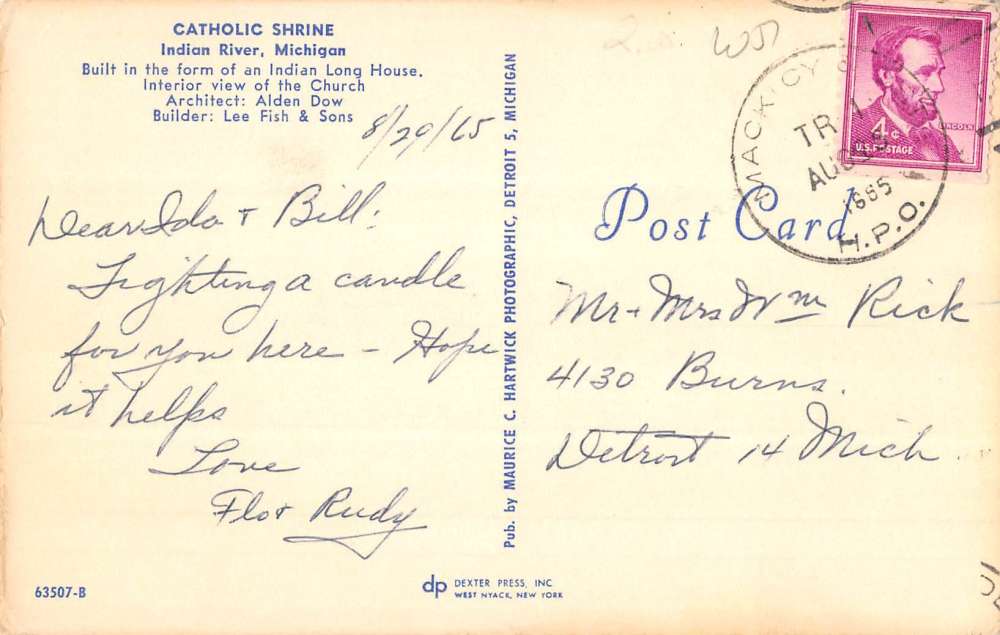 CATHOLIC SHRINE
Indian River, Michigan
Built in the form of an Indian Long House.
Interior view of the Church
Architect: Alden Dow
Builder: Lee Fish & Sons
8/29/65
Dear Ida + Bill:
Lighting a candle
for you here - Hope
it helps
Love
Flo + Rudy
63507-B
Pub. by MAURICE C. HARTWICK PHOTOGRAPHIC, DETROIT 5, MICHIGAN
dp DEXTER PRESS, INC.
WEST NYACK, NEW YORK
Post Card
MACK. CY
TR 1
AUG
1965
H.P.O.
LINCOLN
4¢
U.S. POSTAGE
Mr + Mrs Wm Rick
4130 Burns.
Detroit 14 Mich.